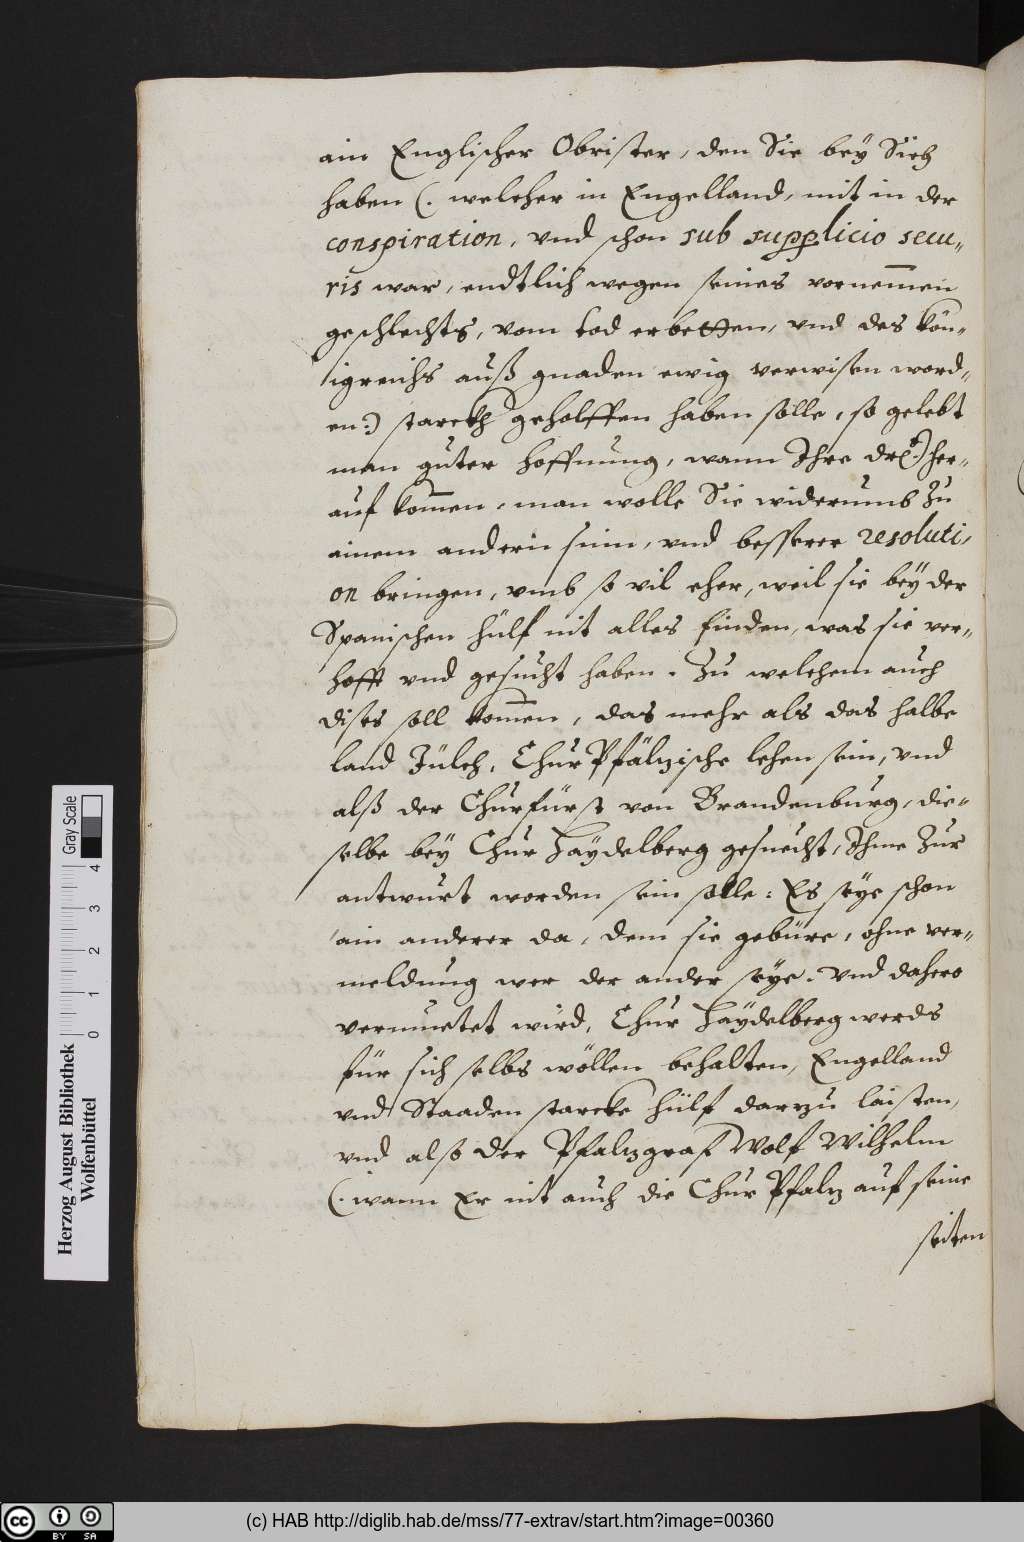 ain Englischer Obrister, den Sie bey Sich
haben (. welcher in Engelland, mit in der
conspiration, vnd schon sub supplicio secu-
ris war, endtlich wegen seines vornem̅en
geschlechts, vom tod erbetten, vnd des kön-
igreichs auß gnaden ewig verwisen word-
en:) starckh geholffen haben solle, so gelebt
man guter hoffnung, wann Ihre dr(t:) her-
auf kom̅en, man wolle Sie widerumb zu
ainem andern sinn, vnd besserer resoluti-
on bringen, vmb so vil eher, weil sie bey der
Spanischen hülf nit alles finden, was sie ver-
hofft vnd gesucht haben. Zu welchem auch
dises soll kom̅en, das mehr als das halbe
land Jülch, ChurPfälzische lehen sein, vnd
alß der Churfürst von Brandenburg, die-
selbe bey Chur Haydelberg gesuecht, Ihme zur
antwurt worden sein solle: Es seye schon
ain anderer da, dem sie gebüre, ohne ver-
meldung wer der ander seye. Vnd dahero
vermuetet wird, Chur Haydelberg werds
für sich selbs wöllen behalten, Engelland
vnd Staaden starcke hülf darzu laisten,
vnd alß der Pfalzgraf Wolf Wilhelm
(. wann Er nit auch die Chur Pfalz auf seine
seiten
Herzog August Bibliothek
Wolfenbüttel
0 1 2 3 4 Gray Scale
cc BY SA
(c) HAB http://diglib.hab.de/mss/77-extrav/start.htm?image=00360